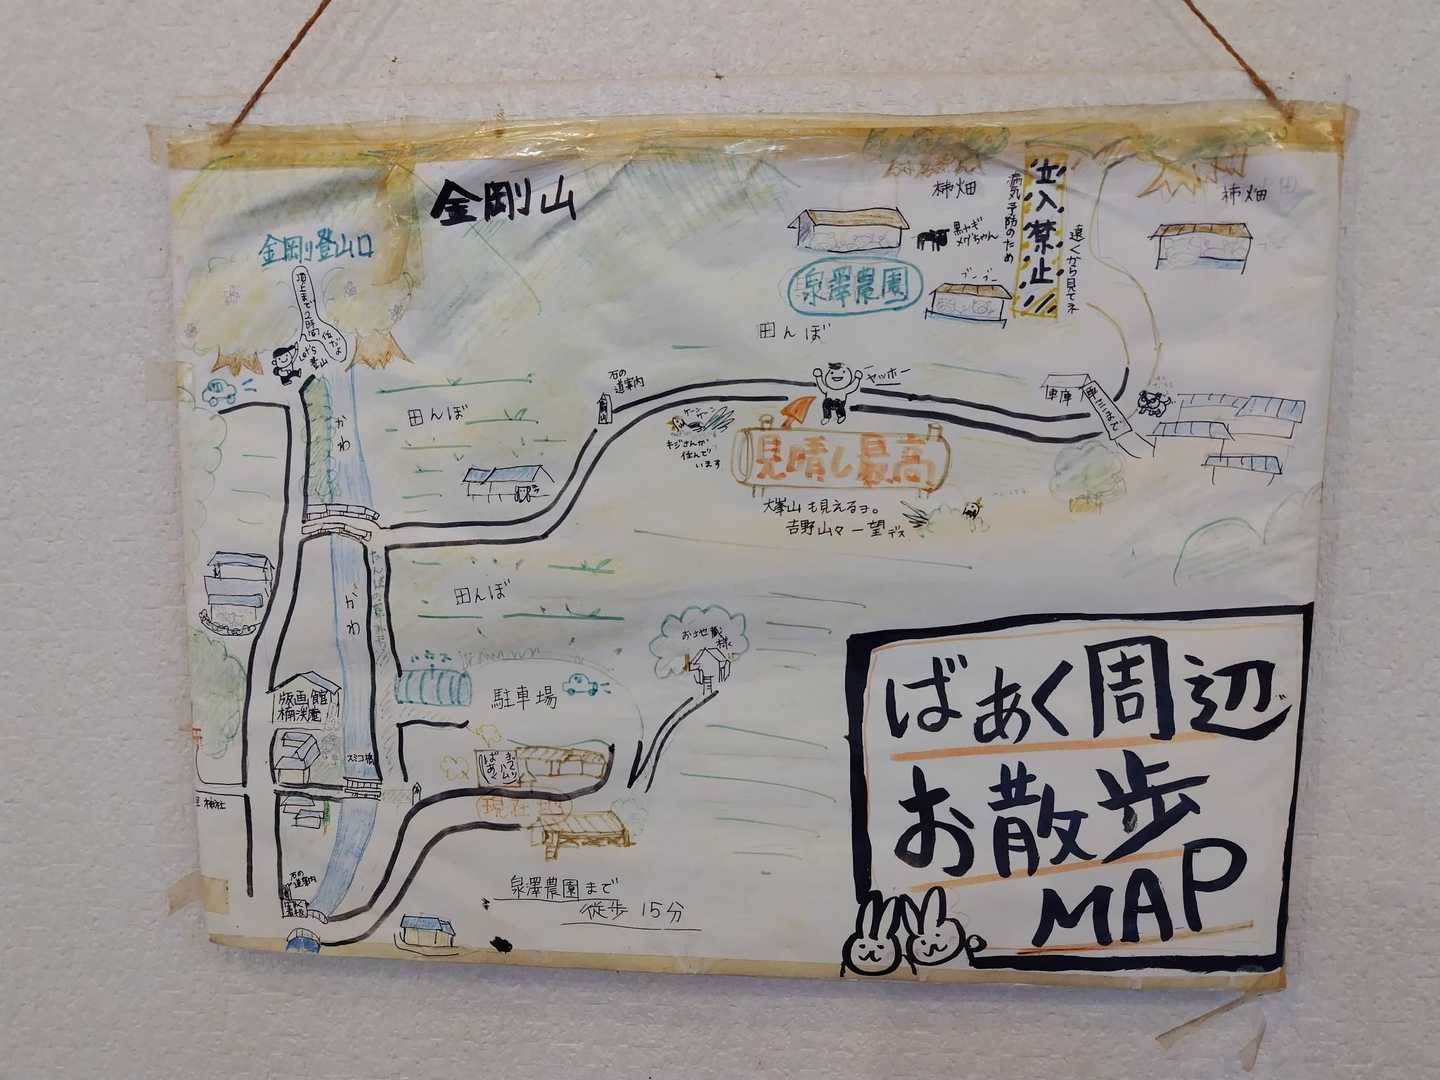 金剛山
金剛登山口
頂上まで2時間
位だよ
Let's
登山
柿畑
黒ヤギ
メグちゃん
病気予防のため
立入禁止
遠くから見てネ
柿畑
泉澤農園
ブーブー
田んぼ
石の
道案内
ヤッホー
車庫
車ここまで
かわ
田んぼ
ケーンケーン
キジさんが
住んで
います
見晴し最高
大峯山も見えるヨ。
吉野山々一望デス
田んぼ
かわ
お地蔵様
駐車場
版画館
楠渓庵
スミコ橋
ばあく
現在地
神社
石の
道案内
泉澤農園まで
徒歩 15分
ばあく周辺
お散歩
MAP